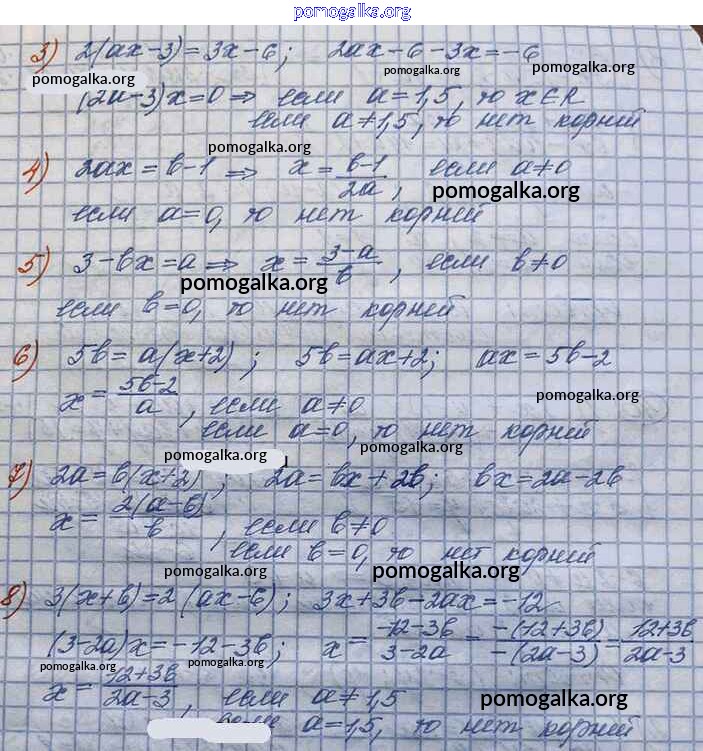 pomogalka.org
3) 2(ax-3)=3x-6; 2ax-6-3x=-6
pomogalka.org pomogalka.org pomogalka.org
(2a-3)x=0 ⇒ если a=1,5, то x∈R
если a≠1,5, то нет корней
pomogalka.org
4) 2ax=b-1 ⇒ x=\frac{b-1}{2a}, если a≠0
pomogalka.org
если a=0, то нет корней
5) 3-bx=a ⇒ x=\frac{3-a}{b}, если b≠0
pomogalka.org
если b=0, то нет корней
6) 5b=a(x+2); 5b=ax+2; ax=5b-2
x=\frac{5b-2}{a}, если a≠0
pomogalka.org
если a=0, то нет корней
pomogalka.org pomogalka.org
7) 2a=b(x+2); 2a=bx+2b; bx=2a-2b
x=\frac{2(a-b)}{b}, если b≠0
если b=0, то нет корней
pomogalka.org pomogalka.org
8) 3(x+b)=2(ax-6); 3x+3b-2ax=-12
(3-2a)x=-12-3b; x=\frac{-12-3b}{3-2a}=\frac{-(12+3b)}{-(2a-3)}=\frac{12+3b}{2a-3}
pomogalka.org pomogalka.org
x=\frac{12+3b}{2a-3}, если a≠1,5
pomogalka.org
если a=1,5, то нет корней